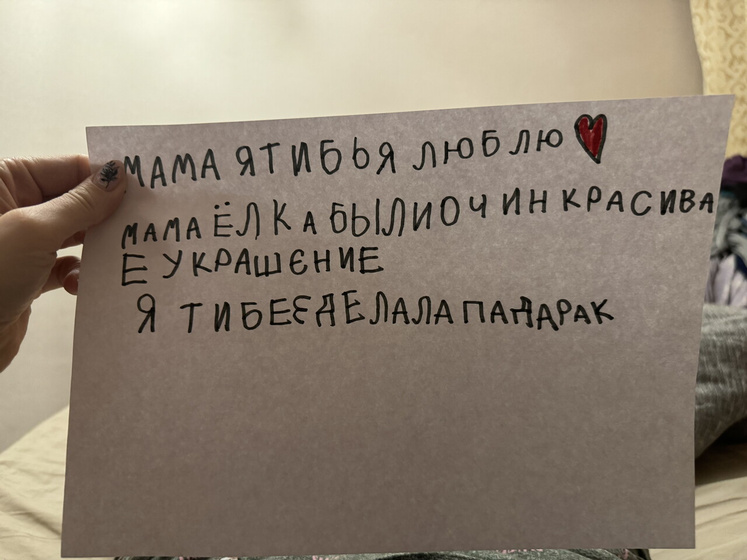 МАМА ЯТИБЬЯ ЛЮБЛЮ
МАМА ЁЛКА БЫЛИОЧИН КРАСИВА
Е УКРАШЕНИЕ
Я ТИБЕЕДЕЛАЛА ПАДАРАК